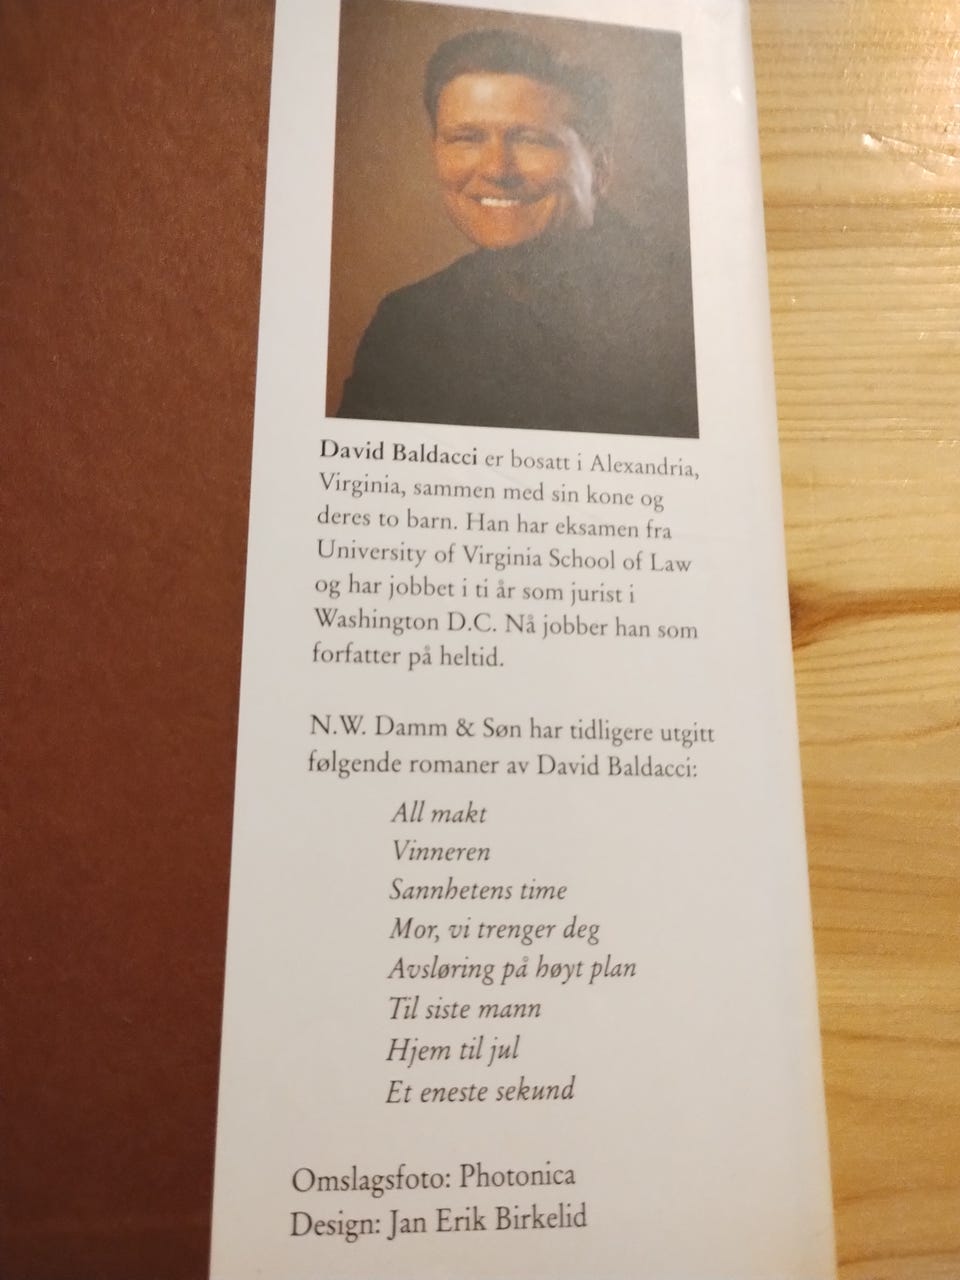 David Baldacci er bosatt i Alexandria,
Virginia, sammen med sin kone og
deres to barn. Han har eksamen fra
University of Virginia School of Law
og har jobbet i ti år som jurist i
Washington D.C. Nå jobber han som
forfatter på heltid.
N.W. Damm & Søn har tidligere utgitt
følgende romaner av David Baldacci:
All makt
Vinneren
Sannhetens time
Mor, vi trenger deg
Avsløring på høyt plan
Til siste mann
Hjem til jul
Et eneste sekund
Omslagsfoto: Photonica
Design: Jan Erik Birkelid